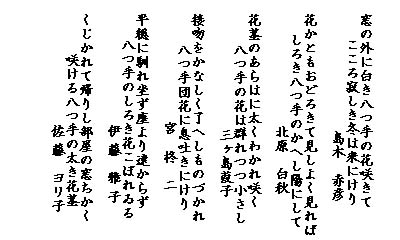 窓の外に白き八つ手の花咲きて
こころ寂しき冬は来にけり
島木　赤彦
花かともおどろきて見しよく見れば
しろき八つ手のかへし陽にして
北原　白秋
花茎のあらはに太くわかれ咲く
八つ手の花は群れつつ小さし
三ヶ島葭子
接吻をかなしく了へしものづかれ
八つ手団花に息吐きにけり
宮　柊二
平穏に馴れ坐ず座より遠からず
八つ手のしろき花こぼれゐる
伊藤　雅子
くじかれて帰りし部屋の窓ちかく
咲ける八つ手の太き花茎
佐藤　ヨリ子